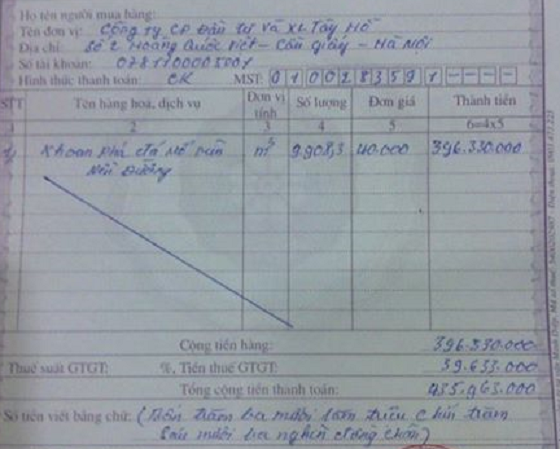 Họ tên người mua hàng:
Tên đơn vị: Công ty CP Đầu tư và XL Tây Hồ
Địa chỉ: Số 2 Hoàng Quốc Việt - Cầu Giấy - Hà Nội
Số tài khoản:
Hình thức thanh toán: CK MST: 0 1 0 0 0 2 8 3 5 9 1 - - - -
STT Tên hàng hoá, dịch vụ Đơn vị tính Số lượng Đơn giá Thành tiền
1 2 3 4 5 6=4x5
1, Khoan phá đá m³ 9.908,3 40.000 396.330.000
Nền đường
Cộng tiền hàng: 396.330.000
Thuế suất GTGT: %, Tiền thuế GTGT: 39.633.000
Tổng cộng tiền thanh toán: 435.963.000
Số tiền viết bằng chữ: (Bốn trăm ba mươi lăm triệu chín trăm
Sáu mươi ba nghìn đồng chẵn)